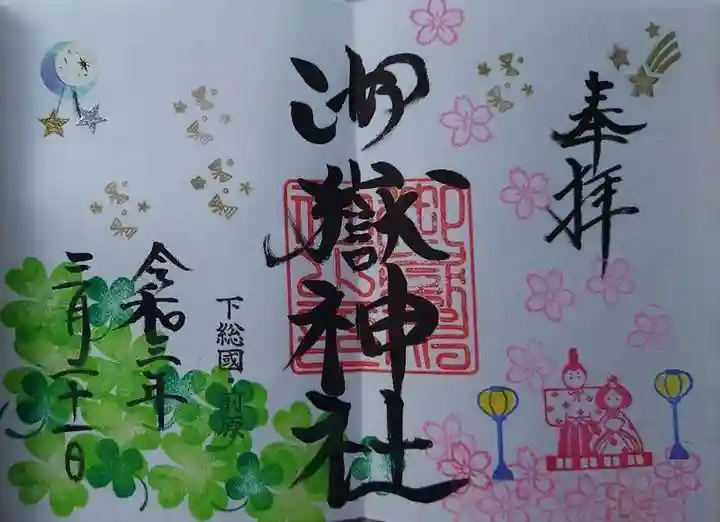 奉拝
御嶽神社
下総國・前原
令和三年
三月二十一日